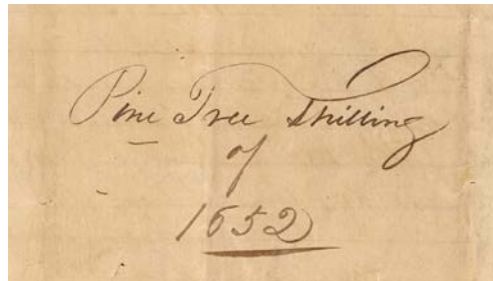 Pine Tree Shilling
of
1652